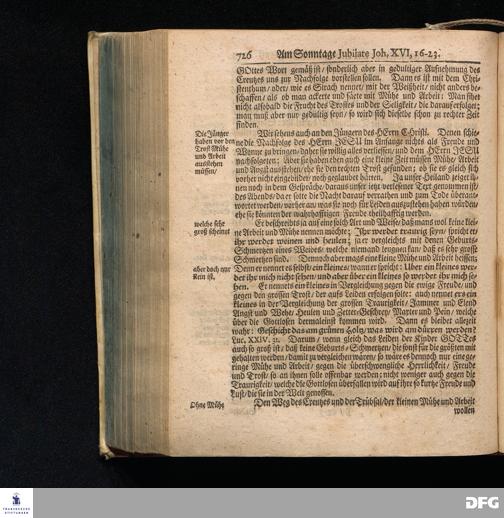 726 Am Sonntage Jubilate Joh. XVI, 16-23.
GOttes Wort gemäß ist/ sonderlich aber in gedultiger Aufnehmung des
Creutzes uns zur Nachfolge vorstellen sollen. Dann es ist mit dem Chri-
stenthum/ oder/ wie es Sirach nennet/ mit der Weißheit/ nicht anders be-
schaffen/ als ob man ackerte und säete mit Mühe und Arbeit: Man siehet
nicht alsobald die Frucht des Trostes und der Seligkeit/ die darauf erfolget;
man muß aber nur gedultig seyn/ so wird sich dieselbe schon zu rechter Zeit
finden.
Die Jünger
haben vor den
Trost Mühe
und Arbeit
ausstehen
müssen/
Wir sehens auch an den Jüngern des HErrn Christi. Denen schie-
ne die Nachfolge des HErrn JESU im Anfange nichts als Freude und
Wonne zu bringen/ daher sie willig alles verliessen/ und dem HErrn JESU
nachfolgeten: Aber sie haben eben auch eine kleine Zeit müssen Mühe/ Arbeit
und Angst ausstehen/ ehe sie den rechten Trost gefunden; ob sie es gleich sich
vorher nicht eingebildet/ noch geglaubet hätten. Ja unser Heiland zeiget ih-
nen noch in dem Gespräche/ daraus unser jetzt verlesener Text genommen ist/
des Abends/ da er solte die Nacht darauf verrathen und zum Tode überant-
wortet worden/ vorher an/ was sie noch für Leiden auszustehen haben würden/
ehe sie könten der wahrhafftigen Freude theilhafftig werden.
welche sehr
groß scheinet
Er beschreibts ja auf eine solch Art und Weise/ daß mans wol keine klei-
ne Arbeit und Mühe nennen möchte; Ihr werdet traurig seyn/ spricht er/
ihr werdet weinen und heulen; ja er vergleichts mit denen Geburts-
Schmertzen eines Weibes/ welche niemand leugnen kan/ daß es sehr grosse
Schmertzen sind. Dennoch aber mags eine kleine Mühe und Arbeit heissen;
aber doch nur
klein ist.
Denn er nennet es selbst/ ein kleines/ wann er spricht: Uber ein kleines wer-
det ihr mich nicht sehen/ und aber über ein kleines so werdet ihr mich se-
hen. Er nennets ein kleines in Vergleichung gegen die ewige Freude/ und
gegen den grossen Trost/ der aufs Leiden erfolgen solte: auch nennet ers ein
kleines in der Vergleichung der grossen Traurigkeit/ Jammer und Elend
Angst und Wehe/ Heulen und Zetter-Geschrey/ Marter und Pein/ welche
über die Gottlosen dermaleinst kommen wird. Dann es bleibet allezeit
wahr: Geschicht das am grünen Holtz/ was wird am dürren werden?
Luc. XXIV. 31. Darum/ wenn gleich das Leiden der Kinder GOTTes
auch so groß ist/ daß keine Geburts-Schmertzen/ die sonst für die größten mit
gehalten werden/ damit zu vergleichen wären/ so wäre es dennoch nur eine ge-
ringe Mühe und Arbeit/ gegen die überschwengliche Herrlichkeit/ Freude
und Trost/ so an ihnen solle offenbar werden; nicht weniger auch gegen die
Traurigkeit/ welche die Gottlosen überfallen wird auf ihre so kurtze Freude und
Lust/ die sie in der Welt genossen.
Ohne Mühe
Den Weg des Creutzes und der Trübsal/ der kleinen Mühe und Arbeit
wollen
FRANCKESCHE
STIFTUNGEN
DFG